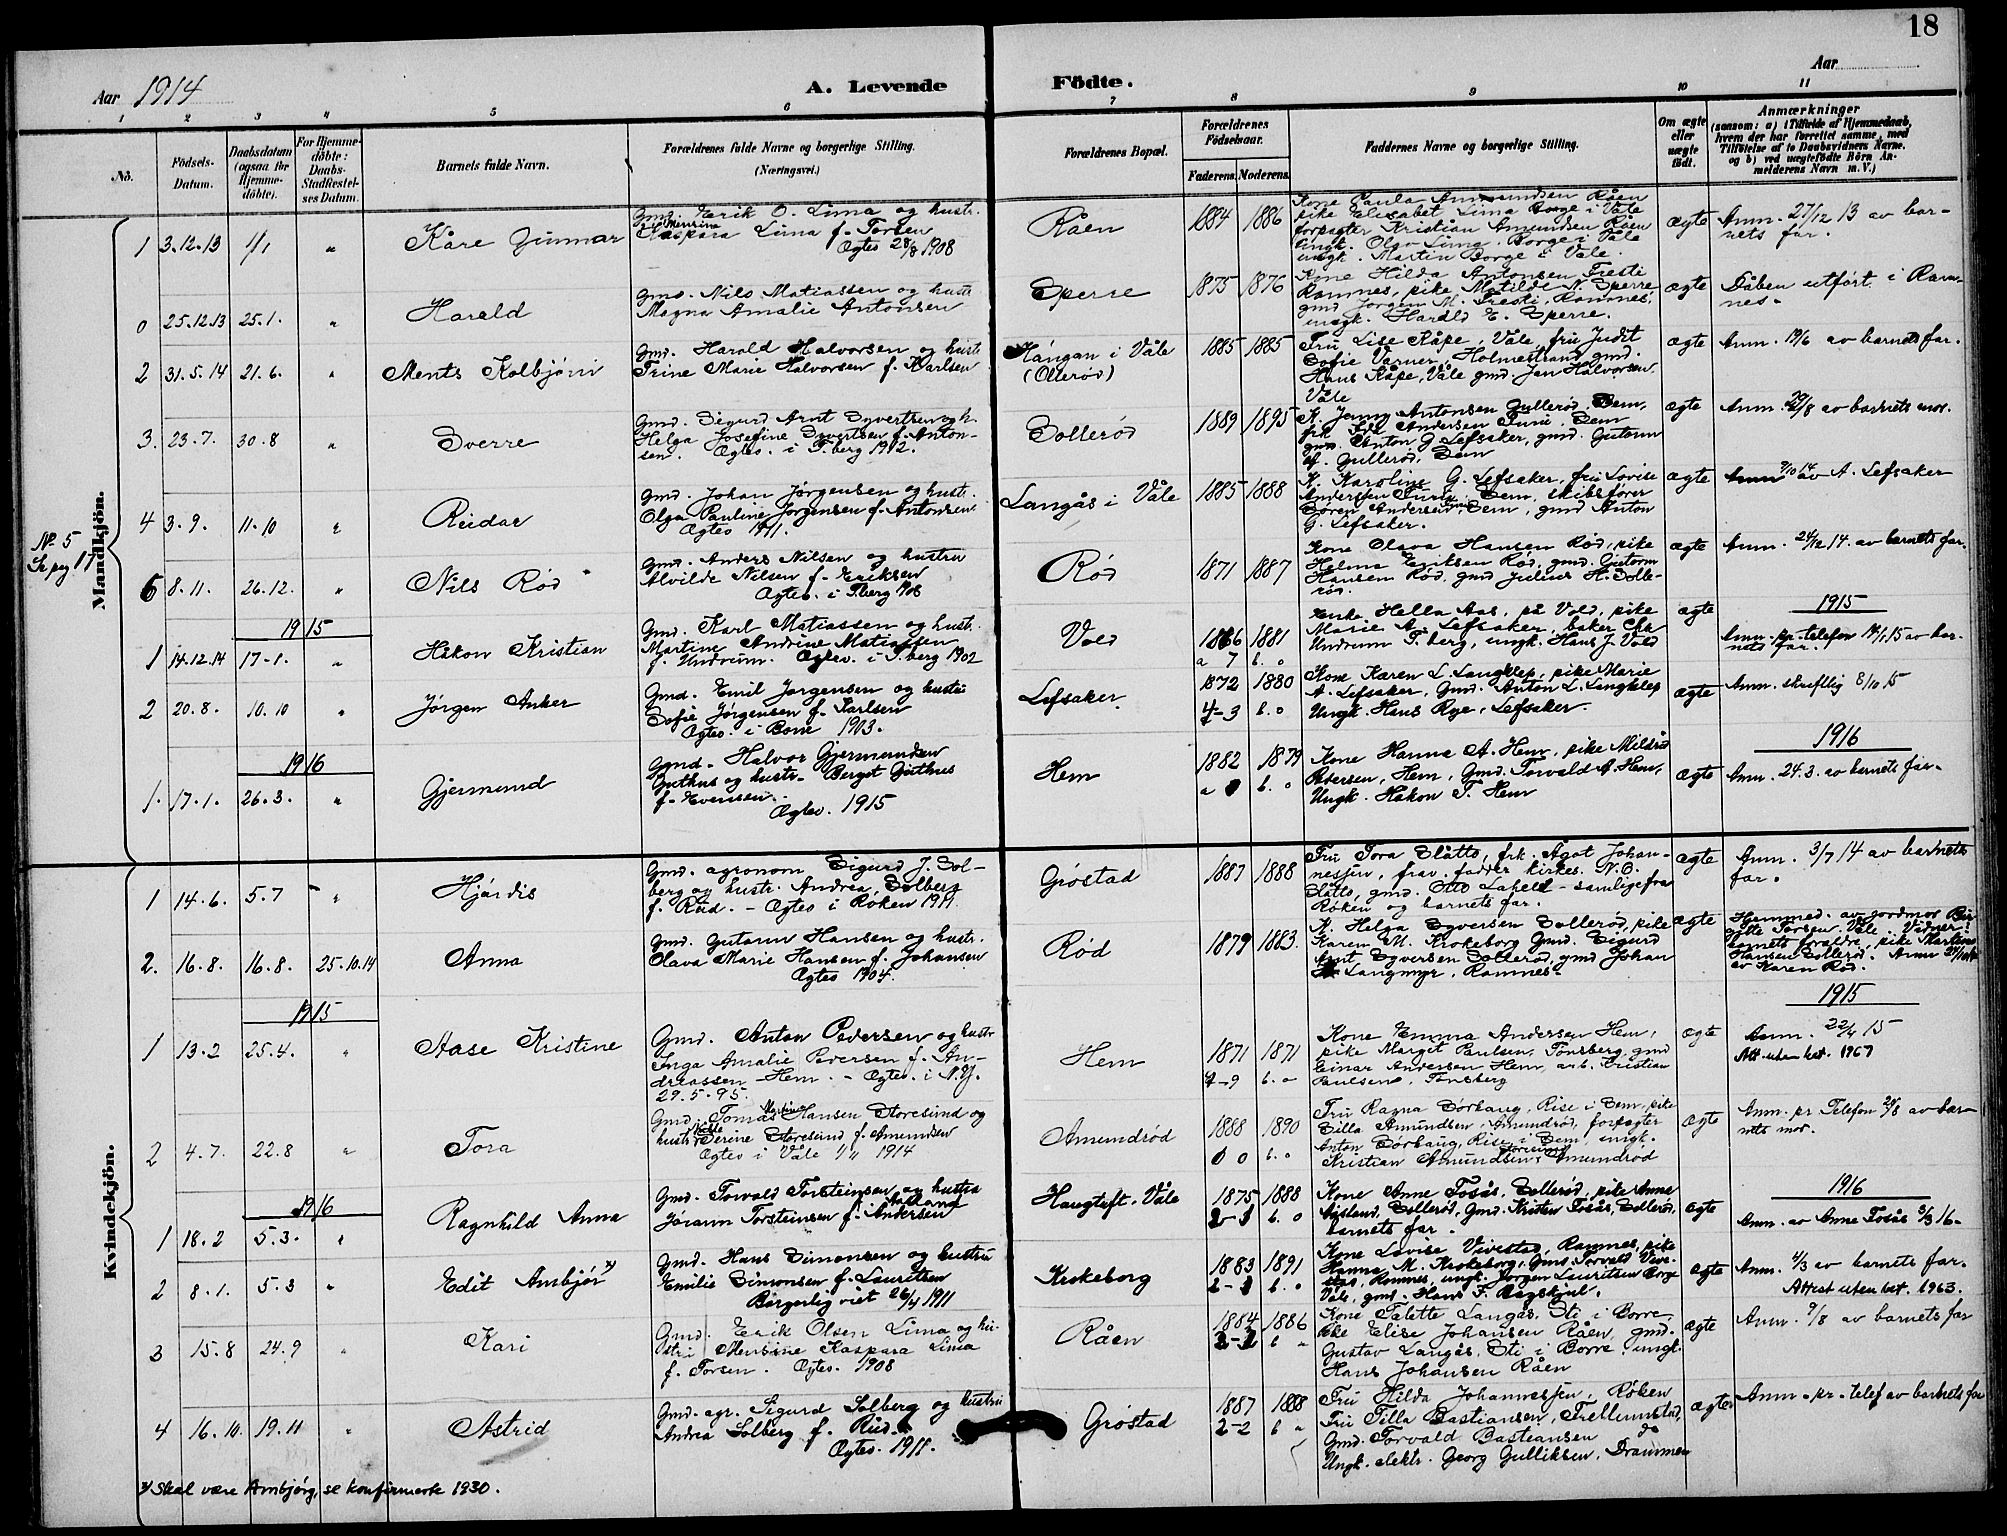 18
Aar 1914
A. Levende Födte.
Aar
1 2 3 4 5 6 7 8 9 10 11
No.
Födsels-Datum.
Daabsdatum (ogsaa for Hjemme-döbte).
For Hjemme-döbte: Daabs-Stadfæstel-ses Datum.
Barnets fulde Navn.
Forældrenes fulde Navne og borgerlige Stilling.
(Næringsvei.)
Forældrenes Bopæl.
Forældrenes Födselsaar.
Faderens. Moderens.
Faddernes Navne og borgerlige Stilling.
Om ægte eller uægte födt.
Anmærkninger
(saasom: a) i Tilfælde af Hjemmedaab, hvem der har forrettet samme, med Tilföielse af to Daabsvidners Navne, og b) ved uægtefödte Börn An-melderens Navn m. V.)
Mandkjön.
No 5
Se pag 17
1 3.12.13 1/1 " Kåre Gunnar
Gmd. Erik O. Lima og hustr.
Menrine Kaspara Lima f. Torsen
Ægtev. 28/8 1908
Råen 1884 1886
Kone Paula Amundsen Råen
pike Elisabet Lima Borge i Våle
forpagter Kristian Amundsen Råen
ungk. Olav Lima, Borge i Våle
ungk. Martin Borge i Våle.
ægte
Anm. 27/12 13 av bar-
nets far.
0 25.12.13 25.1. " Harald
Gmd. Nils Matiassen og hustr.
Magna Amalie Antonsen
Sperre 1875 1876
Kone Hilda Antonsen Fresti
Ramnes, pike Matilde N. Sperre
gmd Jørgen M. Fresti, Ramnes,
ungk. Harald E. Sperre.
ægte
Dåben utført i Ram-
nes.
2 31.5.14 21.6. " Ments Kolbjørn
Gmd. Harald Halvorsen og hustr.
Trine Marie Halvorsen f. Karlsen
Hångan i Våle
(Ollerød)
1885 1885
Fru Lise Råpe, Våle, fru Judit
Sofie Varner, Holmestrand, gmd.
Hans Råpe, Våle gmd. Jan Halvorsen,
Våle
ægte
Anm. 19/6 av barnets far.
3. 23.7. 30.8 " Sverre
Gmd. Sigurd Arnt Syvertsen og h.
Helga Josefine Syvertsen f. Anton-
sen. Ægtev. i T.berg 1912.
Sollerød 1889 1895
K. Jenny Antonsen Gullerød, Sem,
frk Andersen Sem
gmd. Anton G Lefsaker, gmd. Gutorm
A. Gullerød, Sem
ægte
Anm. 29/8 av barnets mor.
4 3.9. 11.10 " Reidar
Gmd. Johan Jørgensen og hustr.
Olga Pauline Jørgensen f. Antonsen
Ægtev 1911.
Langås i Våle 1885 1888
K. Karoline G. Lefsaker, fru Lovise
Andersen Sem, skibsfører
Søren Andersen, Sem, gmd Anton
G. Lefsaker.
ægte
Anm 9/10 14 av A. Lefsaker
6 8.11. 26.12. " Nils Rød
Gmd. Anders Nilsen og hustru
Alvilde Nilsen f. Eriksen
Ægtev. i T.berg 1908
Rød 1871 1887
Kone Olava Hansen Rød, pike
Helene Eriksen Rød, gmd. Gutorm
Hansen Rød, gmd Julius H. Solle-
rød.
ægte
Anm. 24/12 14. av barnets far.
1915 1915
1 14.12.14 17-1. " Håkon Kristian
Gmd. Karl Matiassen og hustr.
Martine Andrine Matiassen
f. Undrum. Ægtev. i T.berg 1902
Vold 1866 1881
a 7 b. 0
Enke Hella Aas, på Vold, pike
Marie A. Lefsaker, baker Chr
Undrum T.berg, ungk. Hans J. Vold
ægte
Anm. pr. telefon 14/1 15 av bar-
nets far.
2 20.8. 10.10 " Jørgen Anker
Gmd. Emil Jørgensen og hustru
Sofie Jørgensen f. Karlsen
Ægtev. i Borre 1903.
Lefsaker 1872 1880
4-3 b. 0
Kone Karen L. Langklep, pike Marie
A. Lefsaker, Gmd. Anton L. Langklep
Ungk. Hans Rye, Lefsaker.
ægte
Anm. skriftlig 8/10 15
1916 1916
1. 17.1. 26.3. " Gjermund
Gmd. Halvor Gjermundsen
Guthus og hustr. Berget Guthus
f. Evensen.
Ægtev. 1915
Hem 1882 1879
a 0 b. 0
Kone Hanna A. Hem, pike Mildrid
Pedersen, Hem, Gmd. Torvald A. Hem,
Ungk. Håkon T. Hem
ægte
Anm. 24.3. av barnets far.
Kvindekjön.
1 14.6. 5.7 " Hjørdis
Gmd. agronom Sigurd J. Sol-
berg og hustr. Andrea Solberg
f. Rud. - Ægtev i Røken 1911.
Grøstad 1887 1888
Fru Tora Slåtto, frk. Agot Johan-
nessen, frav. fadder kirkes. N.O.
Slåtto, gmd. Otto Lafell - samtlige fra
Røken og barnets far.
ægte
Anm. 3/7 14 av barnets
far.
2. 16.8. 16.8. 25.10.14 Anna
Gmd. Gutorm Hansen og hustr.
Olava Marie Hansen f. Johansen
Ægtev 1904.
Rød 1879 1883.
K. Helga Syversen Sollerød, pike
Karen M. Krokeborg Gmd. Sigurd
Arnt Syversen Sollerød, gmd Johan
Langmyr, Ramnes.
ægte
Hjemmed. av jordmor Bir-
gitte Torsen, Våle. Vidner:
barnets forældre, pike Martine
Hansen Sollerød. Anm 24/10
av Karen Rød.
1915 1915
1 13.2 25.4. " Aase Kristine
Gmd. Anton Pedersen og hustr
Inga Amalie Pedersen f. An-
dreassen Hem. - Ægtev. i N.Y.
29.5.95.
Hem 1871 1871
7-9 b. 0
Kone Emma Andersen Hem,
pike Margit Paulsen, Tønsberg, gmd
Einar Andersen Hem, arb. Kristian
Paulsen, Tønsberg
ægte
Anm. 22/4 15
Att. uten bet. 1967
2 4.7. 22.8 " Tora
Gmd. Tomas Martin Hansen Storesund og
hustr. Hilda Serine Storesund f. Amundsen
Ægtev i Våle 1/11 1914
Amundrød 1888 1890
0 0 b. 0
Fru Ragna Sørhaug, Rise i Sem, pike
Silla Amundsen, Amundrød, forpagter
Anton Sørhaug, Rise i Sem, ungk.
Kristian Amundsen Amundrød
ægte
Anm. pr Telefon 20/8 av bar-
nets mor.
1916 1916
1 18.2 5.3. " Ragnhild Anna
Gmd. Torvald Torsteinsen og hustru
Jørann Torsteinsen f. Andersen
Haugtuft, Våle 1875 1888
2-1 b. 0
Kone Anne Fosås, Sollerød, pike Anna
Aasland, Sollerød, Gmd. Kristen Fosås, Sollerød,
barnets far.
ægte
Anm. av Anne Fosås 3/3 16.
2 8.1. 5.3 " Edit Ambjør x)
Gmd. Hans Simonsen og hustru
Emilie Simonsen f. Lauritsen
Borgerlig viet 26/4 1911
Krokeborg 1883 1891
2-1 b. 0
Kone Lovise Vivestad, Ramnes, pike
Hanna M. Krokeborg, Gmd. Torvald Vive-
stad, Ramnes, ungk. Jørgen Lauritsen Borge
Våle, gmd. Hans F. Bagskjul.
ægte
Anm. 4/3 av barnets far.
Attest uten bet. 1963.
3 15.8 24.9 " Kari
Gmd. Erik Olsen Lima og hu-
stru Menrine Kaspara Lima
f. Torsen. Ægtev. 1908
Råen 1884 1886
3-2 b "
Kone Talette Langås, Sti i Borre
pike Elise Johansen Råen, gmd.
Gustav Langås, Sti i Borre, ungk.
Hans Johansen Råen
ægte
Anm. 9/8 av barnets far
4 16.10. 19.11 " Astrid
Gmd. agr. Sigurd Solberg og hustru
Andrea Solberg f. Rud.
Ægtev. 1911.
Grøstad 1887 1888
2-2 b "
Fru Hilda Johannessen, Røken
Fru Tilla Bastiansen, Trellumstad,
Gmd. Torvald Bastiansen do
Ungk. elektr. Georg Gulliksen, Drammen
ægte
Anm. pr. telef av barnets far
x) Skal være Ambjørg, se konfirmerte 1930.